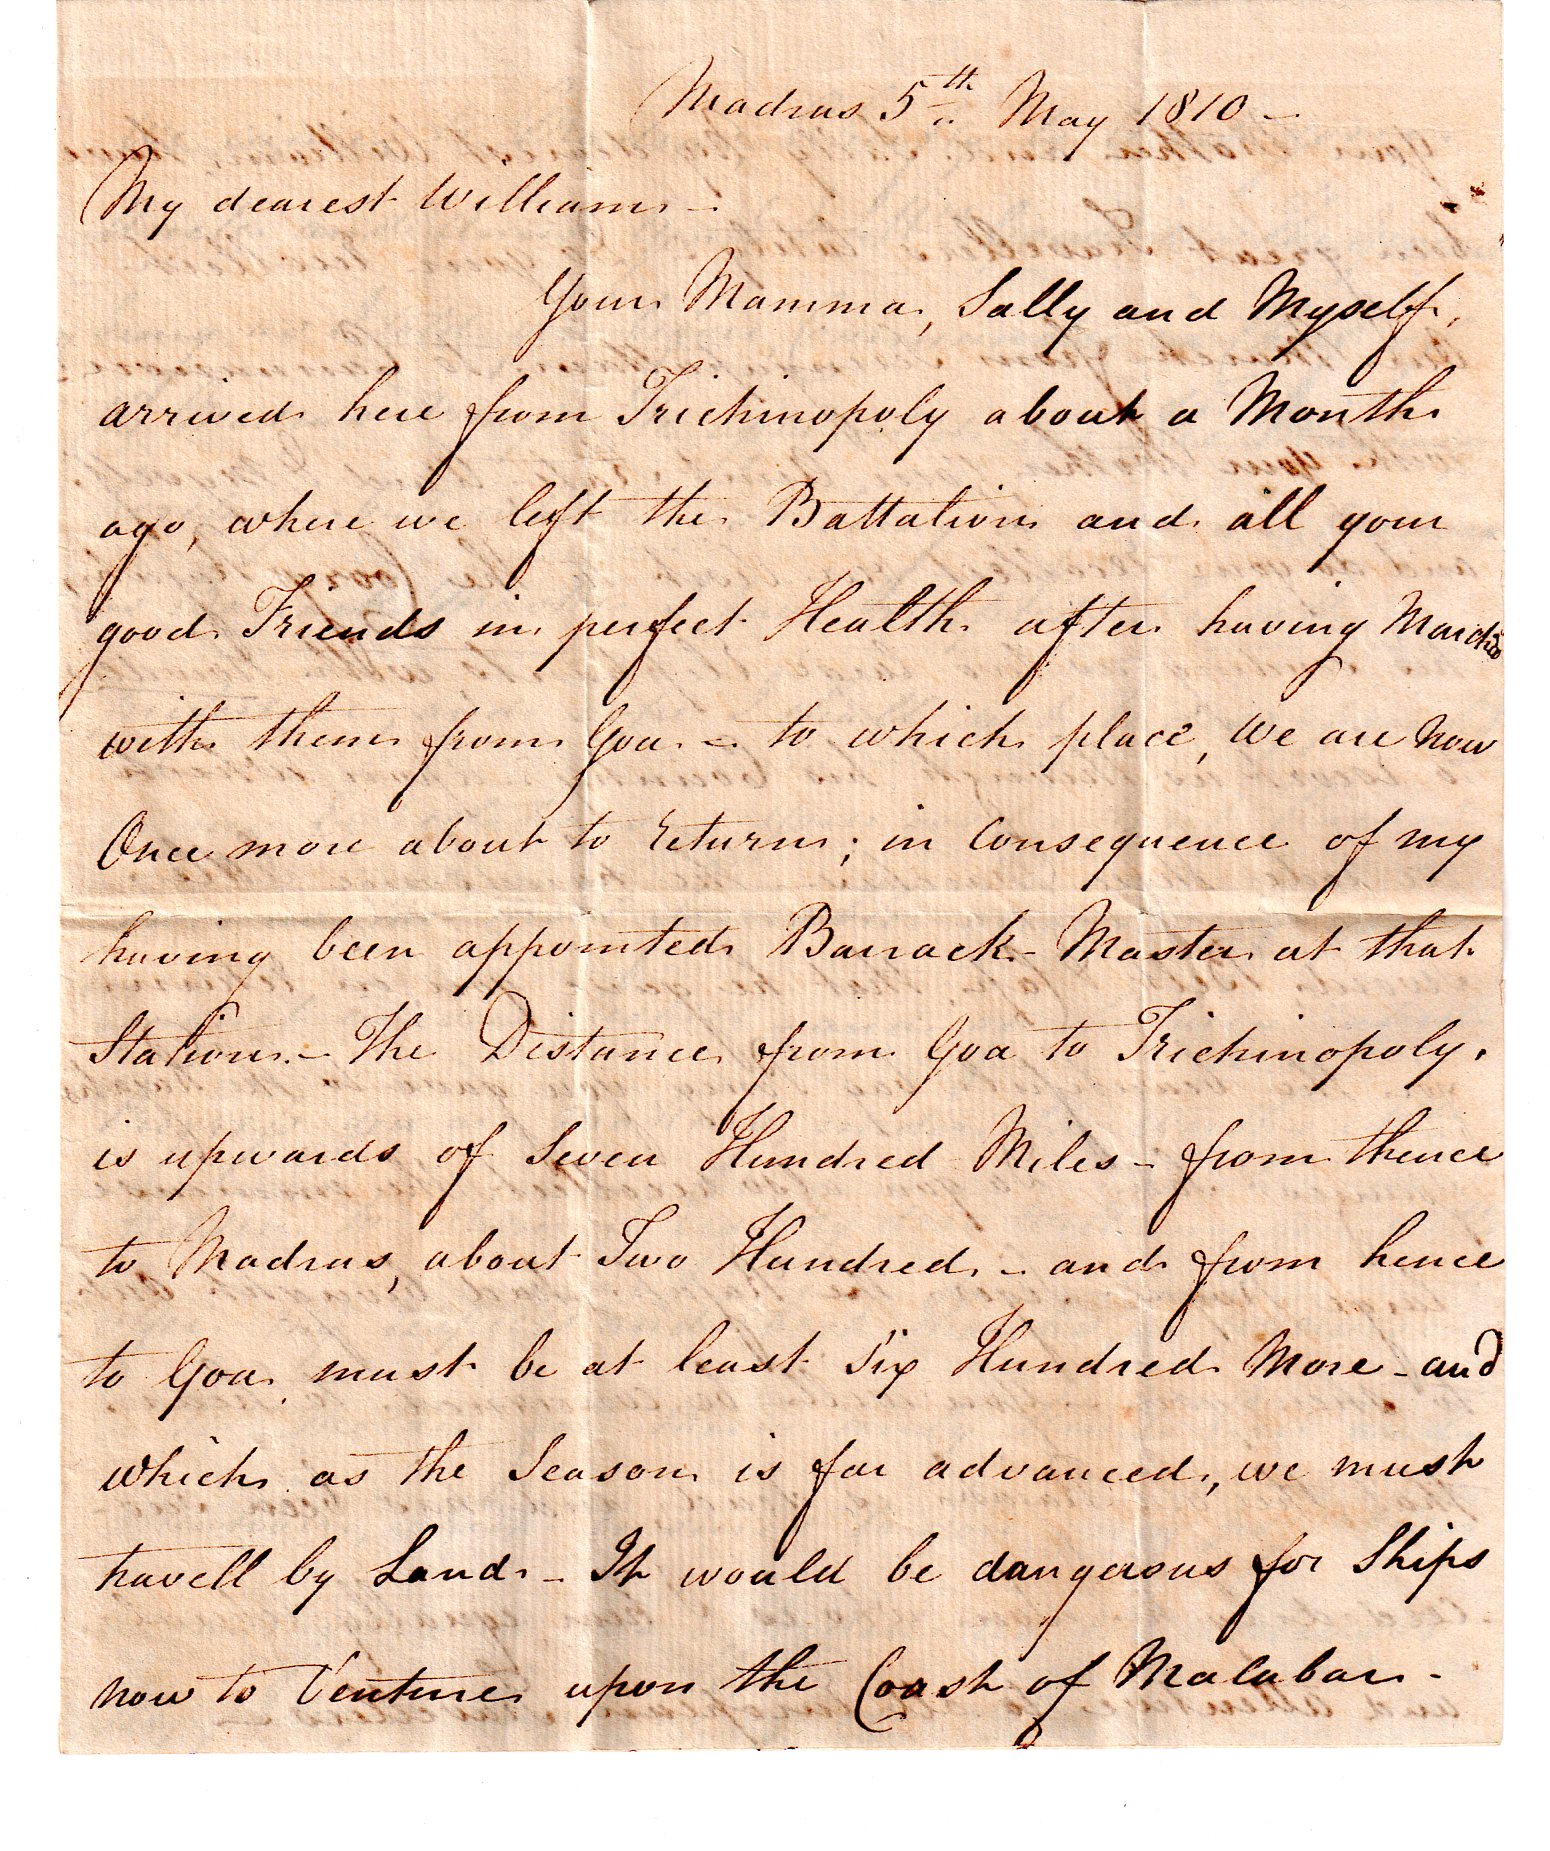 Madras 5th May 1810 -
My dearest William -
Your Mamma, Sally and Myself,
arrived here from Trichinopoly about a Month
ago, where we left the Battalion and all your
good Friends in perfect Health after having Marched
with them from Goa - to which place, We are now
Once more about to return; in Consequence of my
having been appointed Barrack-Master at that
Station. - The Distance from Goa to Trichinopoly.
is upwards of Seven Hundred Miles - from thence
to Madras, about Two Hundred - and from hence
to Goa, must be at least Six Hundred More - and
which as the Season is far advanced, we must
travell by Land - It would be dangerous for Ships
now to Venture upon the Coast of Malabar -